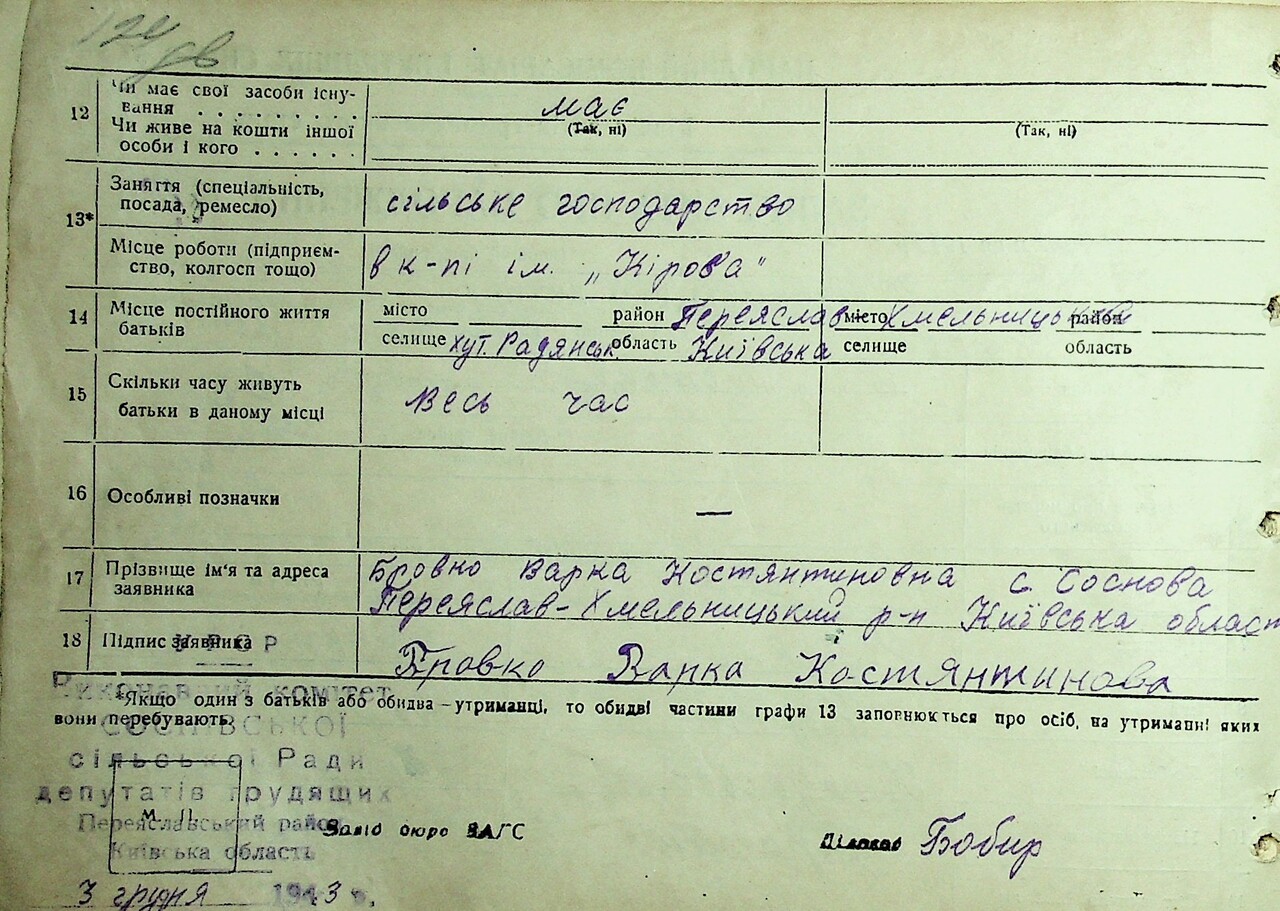 124 зв
12 Чи має свої засоби існу-
вання . . . . . . . . . має
(Так, ні) (Так, ні)
Чи живе на кошти іншої
особи і кого . . . . . .
13* Заняття (спеціальність,
посада, ремесло) сільське господарство
Місце роботи (підприєм-
ство, колгосп тощо) в к-пі ім. „Кірова"
14 Місце постійного життя
батьків місто район Переяслав Хмельницький місто район
селище хут. Радянськ. область Київська селище область
15 Скільки часу живуть
батьки в даному місці весь час
16 Особливі позначки —
17 Прізвище ім'я та адреса
заявника Бровко Варка Костянтиновна с. Соснова
Переяслав-Хмельницький р-н Київська област
18 Підпис заявника Бровко Варка Костянтинова
УРСР
*Якщо один з батьків або обидва—утриманці, то обидві частини графи 13 заповнюються про осіб, на утриманні яких
вони перебувають.
Виконавчий комітет
СОСНІВСЬКОЇ
сільської Ради
депутатів трудящих
Переяславський район
Київська область
М. П.
Завід бюро ЗАГС Бобир
3 грудня 1943 р.